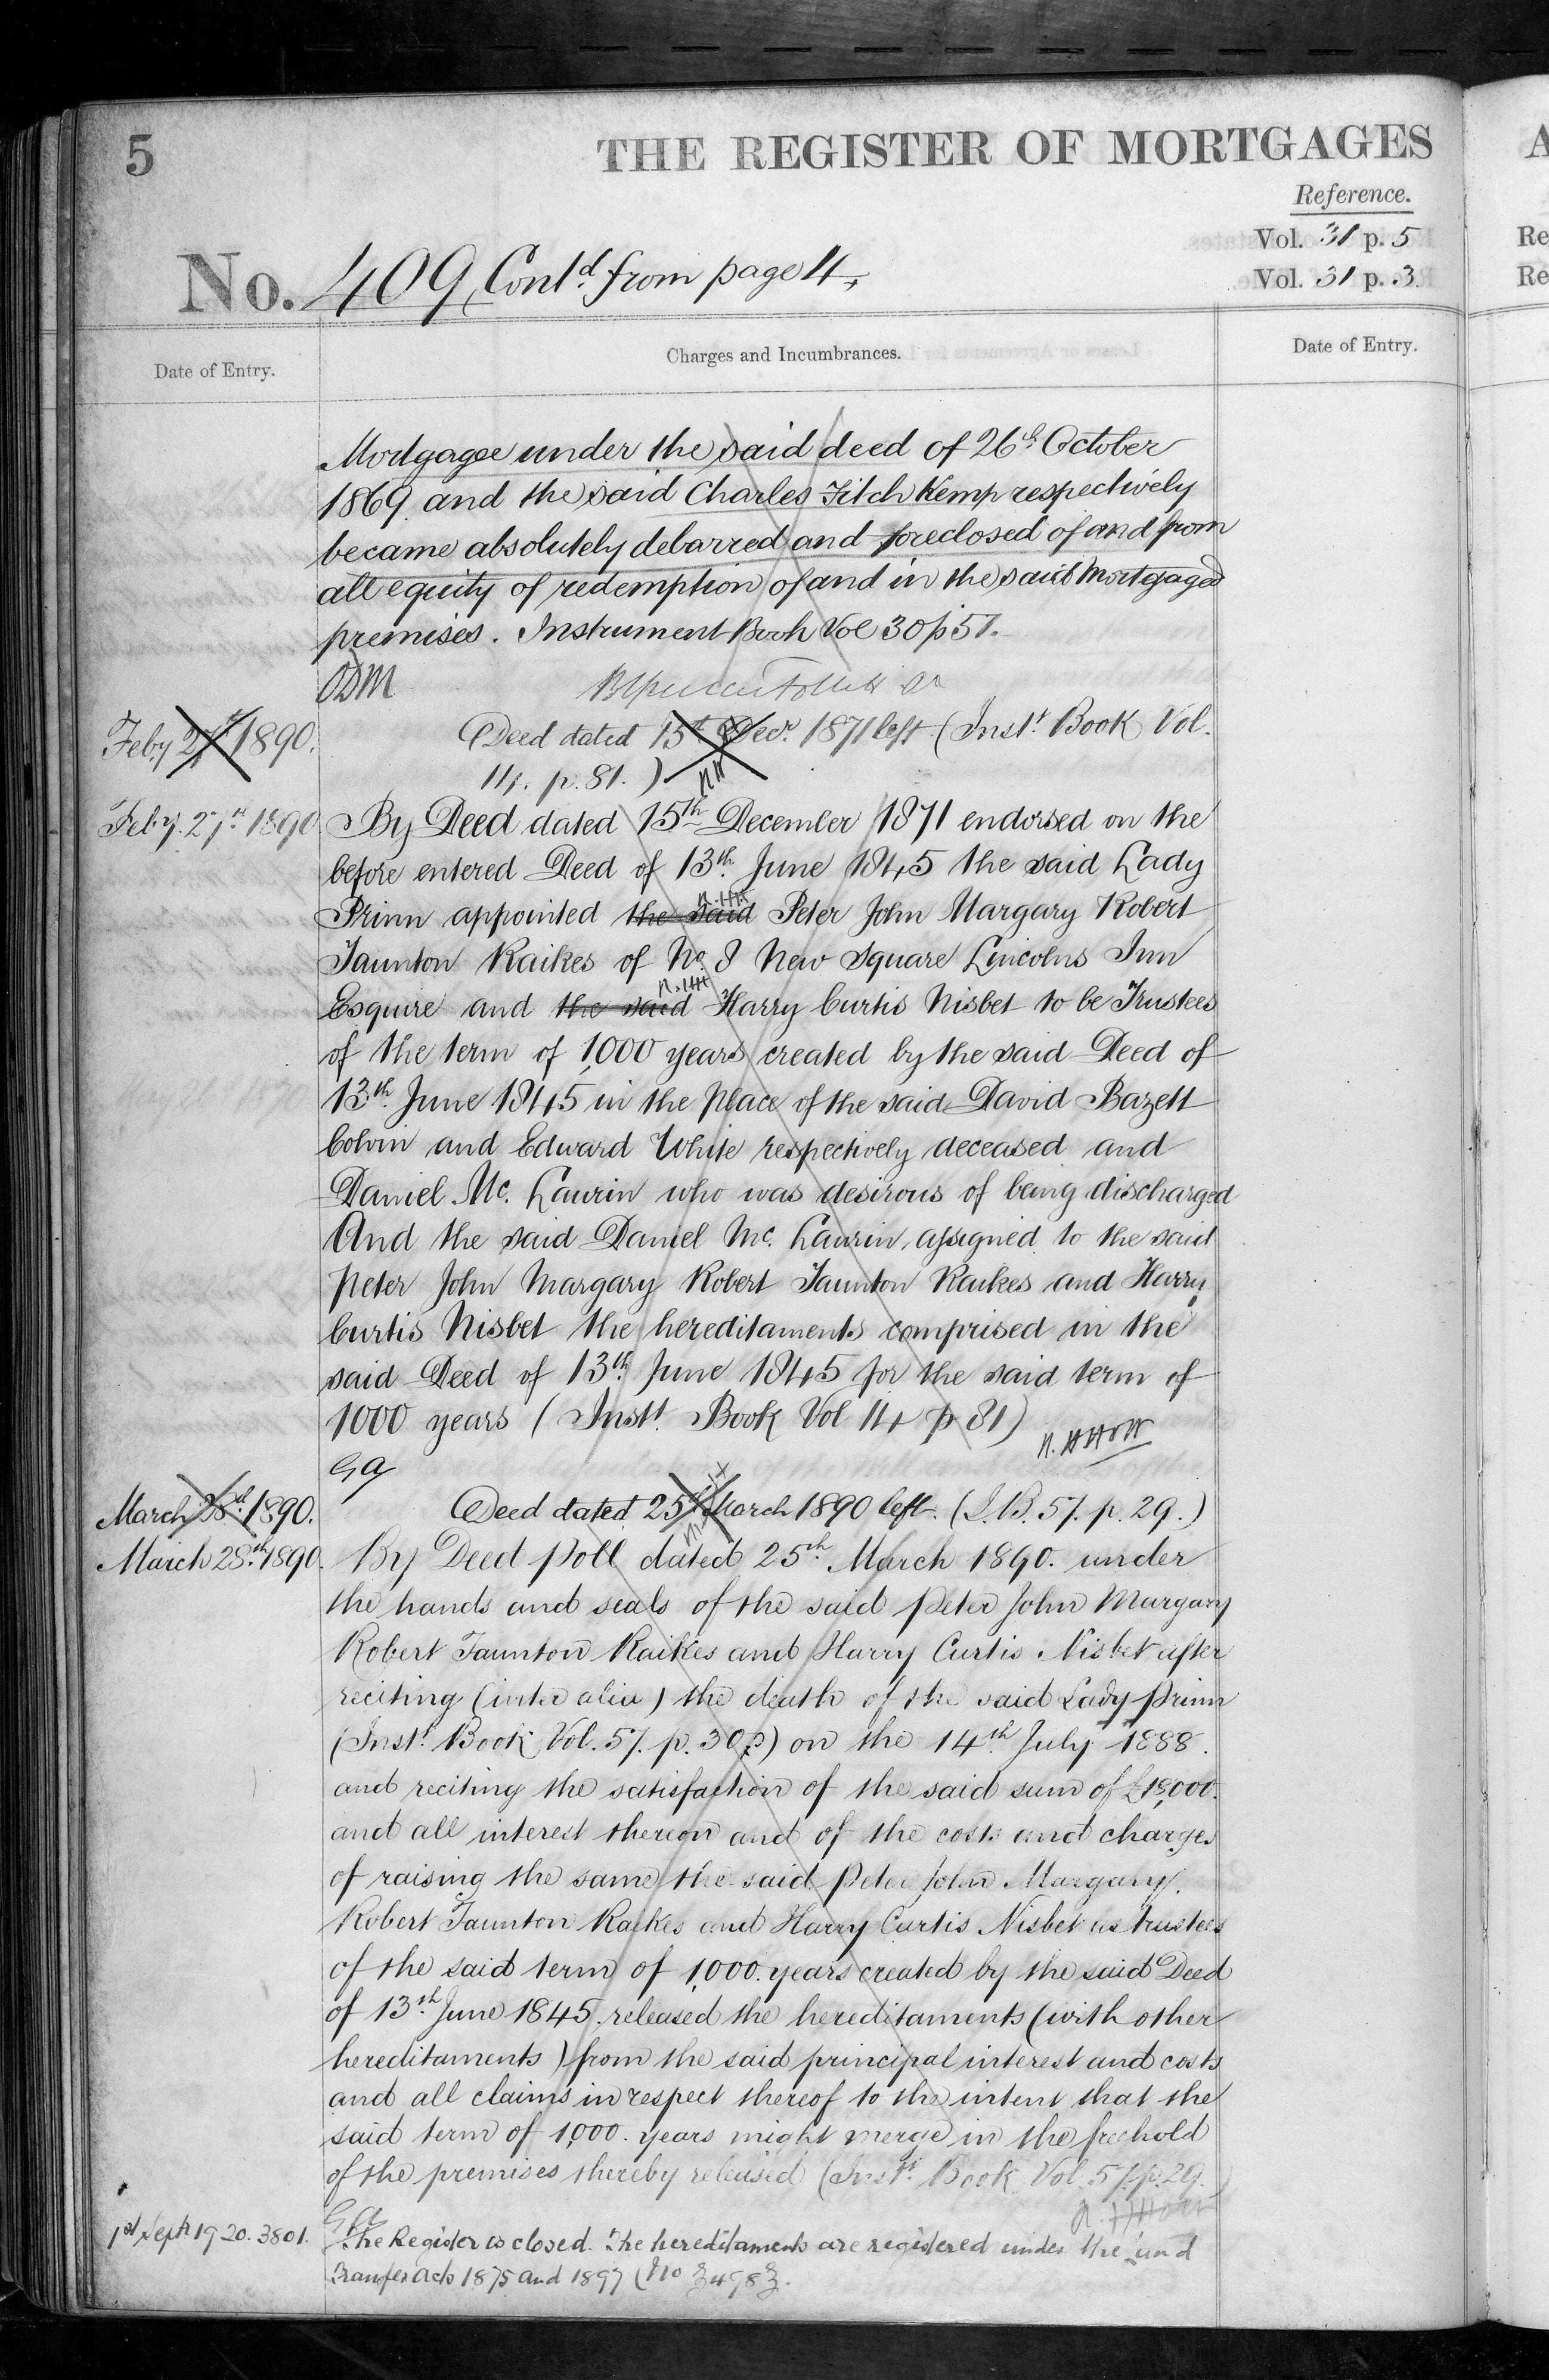 5
THE REGISTER OF MORTGAGES
Reference.
Vol. 31 p. 5
Vol. 31 p. 3
No. 409 Contd. from page 4
Date of Entry.
Charges and Incumbrances.
Date of Entry.
Mortgagee under the said deed of 26th October
1869 and the said Charles Fitch Kemp respectively
became absolutely debarred and foreclosed of and from
all equity of redemption of and in the said Mortgaged
premises. Instrument Book Vol 30 p 57.
ODM
Feby 27th 1890.
Deed dated 15th Decr. 1871 left (Inst. Book Vol.
14. p. 81.)
Feby. 27th 1890
By Deed dated 15th December 1871 endorsed on the
before entered Deed of 13th June 1845 the said Lady
Prinn appointed the said Peter John Margary Robert
Taunton Raikes of No. 8 New Square Lincolns Inn
Esquire and the said Harry Curtis Nisbet to be Trustees
of the term of 1,000 years created by the said Deed of
13th June 1845 in the place of the said David Bazett
Colvin and Edward White respectively deceased and
Daniel Mc. Laurin who was desirous of being discharged
And the said Daniel Mc. Laurin assigned to the said
Peter John Margary Robert Taunton Raikes and Harry
Curtis Nisbet the hereditaments comprised in the
said Deed of 13th June 1845 for the said term of
1000 years (Instt. Book Vol 14 p 81)
March 28th 1890.
Deed dated 25th March 1890 left. (I.B. 57. p. 29.)
March 28th 1890.
By Deed Poll dated 25th March 1890. under
the hands and seals of the said Peter John Margary
Robert Taunton Raikes and Harry Curtis Nisbet after
reciting (inter alia) the death of the said Lady Prinn
(Inst. Book Vol. 57. p. 30) on the 14th July 1888.
and reciting the satisfaction of the said sum of £18,000.
and all interest thereon and of the costs and charges
of raising the same the said Peter John Margary.
Robert Taunton Raikes and Harry Curtis Nisbet as trustees
of the said term of 1,000. years created by the said Deed
of 13th June 1845. released the hereditaments (with other
hereditaments) from the said principal interest and costs
and all claims in respect thereof to the intent that the
said term of 1,000. years might merge in the freehold
of the premises thereby released (Instt. Book Vol. 57. p. 29.)
1st Sept 1920. 3801.
The Register is closed. The hereditaments are registered under the Land
Transfer Acts 1875 and 1897 (No